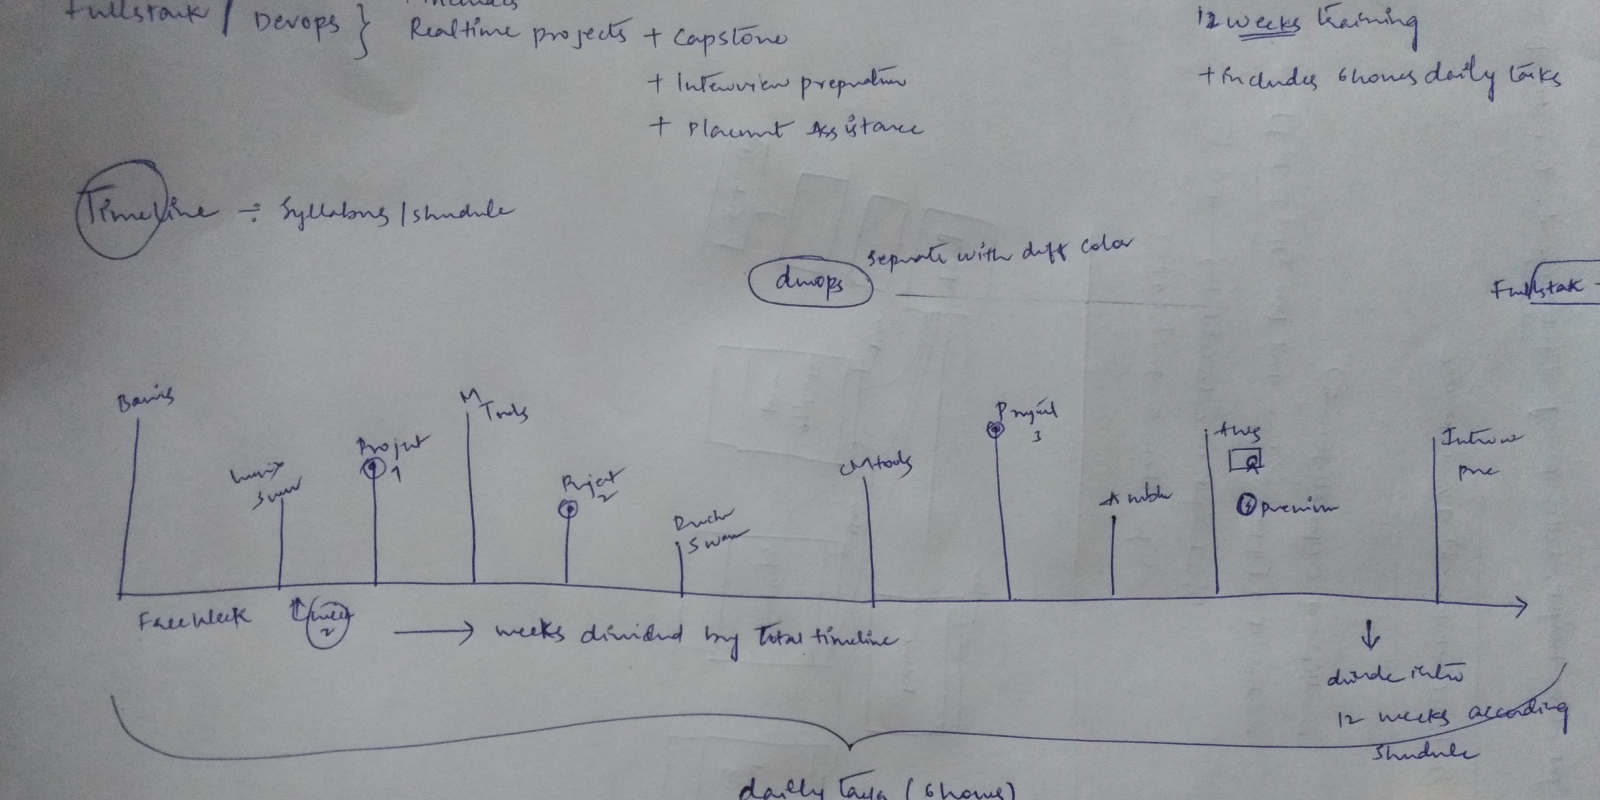 Fullstack / Devops } Realtime projects + Capstone
+ Interview prepration
+ Placemnt Assistance
12 weeks training
+ includes 6 hours daily tasks
Timeline ÷ Syllabus / shudule
devops
Seprate with diff color
Fullstak -
Basics
Project
1
M
Tools
Project
2
Swarm
CM tools
Project
3
Aws
premium
prep
Free week
week
2
→ weeks divided by Total timeline
↓
divide into
12 weeks according
shudule
daily Tasks (6 hours)